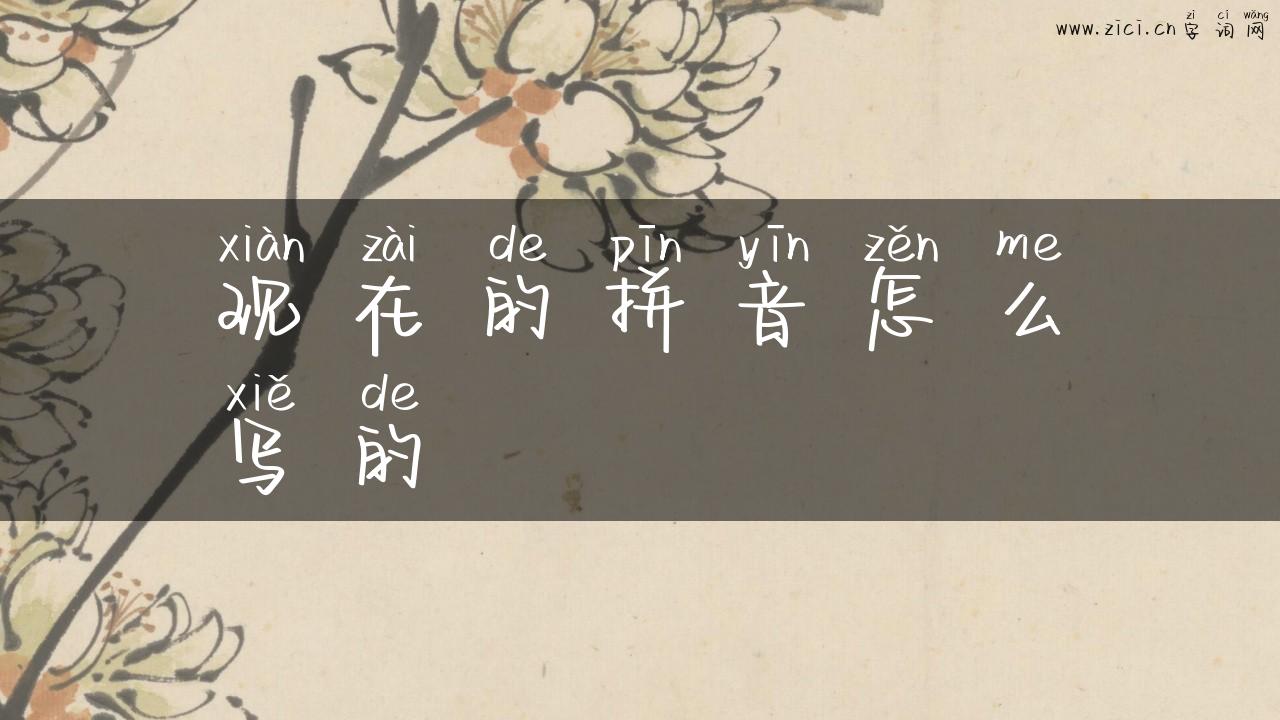 www.zici.cn 字词网
zì cí wǎng
xiàn zài de pīn yīn zěn me
现在的拼音怎么
xiě de
写的